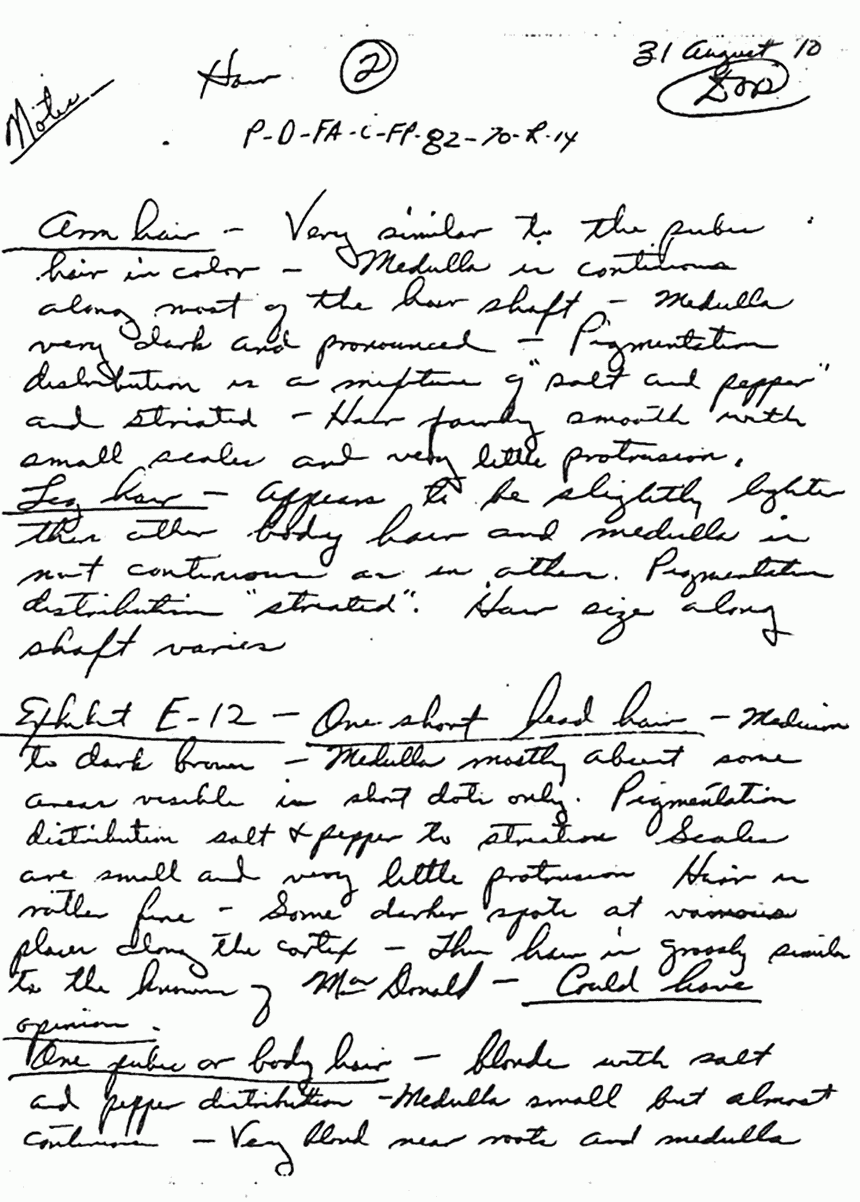 Notes
Hair ②
31 August 70
P-D-FA-C-FP-82-70-R-14
Arm hair - Very similar to the pubic
hair in color - Medulla is continous
along most of the hair shaft - Medulla
very dark and pronounced - Pigmentation
distribution is a mixture of "salt and pepper"
and striated - Hair fairly smooth with
small scales and very little protrusion.
Leg hair - appears to be slightly lighter
than other body hair and medulla is
not continuous as in others. Pigmentation
distribution "striated". Hair size along
shaft varies
Exhibit E-12 - One short head hair - Medium
to dark brown - Medulla mostly absent some
areas visible in short dots only. Pigmentation
distribution salt & pepper to striation Scales
are small and very little protrusion Hair is
rather fine - Some darker spots at various
places along the cortex - This hair is grossly similar
to the known of MacDonald - Could have
opinion.
One pubic or body hair - blonde with salt
and pepper distribution - Medulla small but almost
continuous - Very blond near roots and medulla